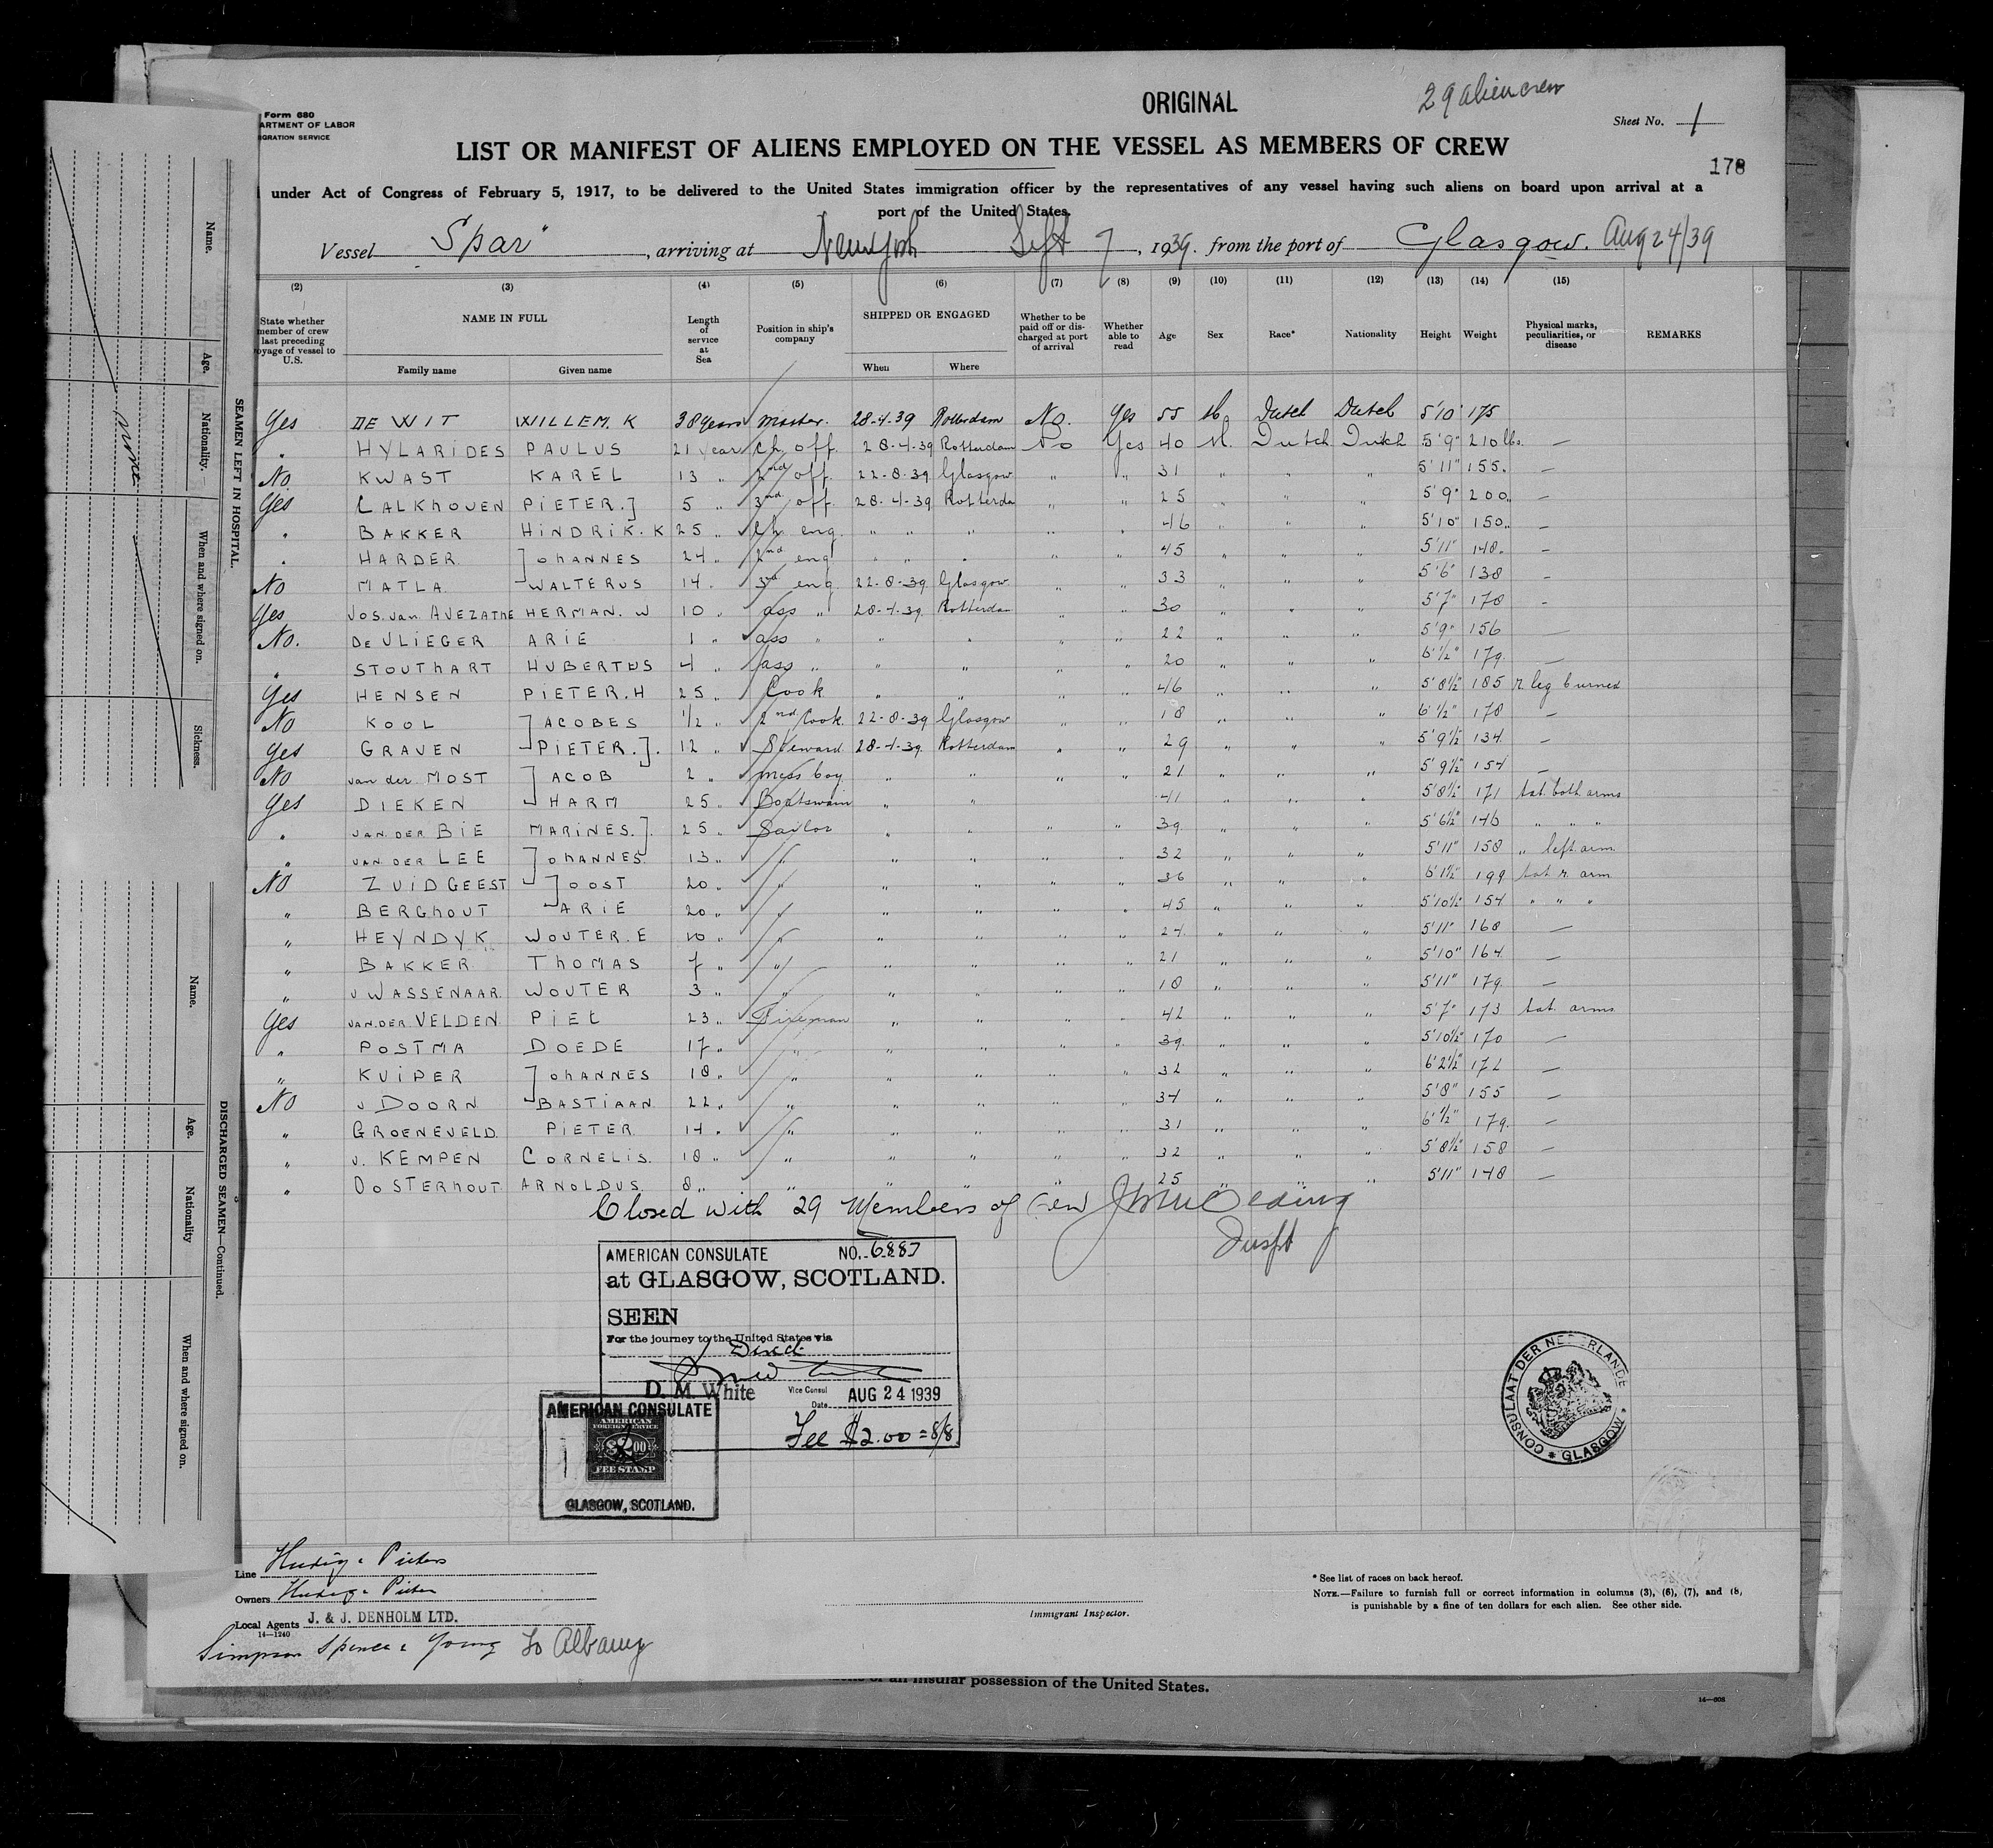 ORIGINAL
29 alien crew
Form 680
ARTMENT OF LABOR
GRATION SERVICE
Sheet No. 1
LIST OR MANIFEST OF ALIENS EMPLOYED ON THE VESSEL AS MEMBERS OF CREW
178
under Act of Congress of February 5, 1917, to be delivered to the United States immigration officer by the representatives of any vessel having such aliens on board upon arrival at a
port of the United States.
Vessel "Spar", arriving at New York Sept 7, 1939. from the port of Glasgow. Aug 24/39
(2) (3) (4) (5) (6) (7) (8) (9) (10) (11) (12) (13) (14) (15)
State whether member of crew last preceding oyage of vessel to U.S. NAME IN FULL Family name Given name Length of service at Sea Position in ship's company SHIPPED OR ENGAGED When Where Whether to be paid off or discharged at port of arrival Whether able to read Age Sex Race* Nationality Height Weight Physical marks, peculiarities, or disease REMARKS
Yes DE WIT WILLEM. K 38 Years Master. 28-4-39 Rotterdam No. Yes 55 M. Dutch Dutch 5'10" 175
" HYLARIDES PAULUS 21 year Ch off. 28-4-39 Rotterdam No Yes 40 M. Dutch Dutch 5'9" 210 lbs. —
No KWAST KAREL 13 " 2nd off. 22-8-39 Glasgow " " 31 " " " 5'11" 155. —
Yes CALKHOVEN PIETER. J 5 " 3rd off. 28-4-39 Rotterda " " 25 " " " 5'9" 200 —
" BAKKER HINDRIK. K 25 " Ch. eng. " " " " 46 " " " 5'10" 150 —
" HARDER JOHANNES 24 " 2nd eng " " " " 45 " " " 5'11" 148 —
No MATLA WALTERUS 14 " 3rd eng 22-8-39 Glasgow " " 33 " " " 5'6" 138 —
Yes Jos. van AVEZATHE HERMAN. W 10 " ass " 28-4-39 Rotterdam " " 30 " " " 5'7" 178 —
No. De VLIEGER ARIE 1 " ass " " " " " 22 " " " 5'9" 156 —
" STOUTHART HUBERTUS 4 " ass " " " " " 20 " " " 6'½" 179. —
Yes HENSEN PIETER. H 25 " Cook " " " " 46 " " " 5'8½" 185 r. leg burned
No KOOL JACOBES ½ " 2nd Cook 22-8-39 Glasgow " " 18 " " " 6'½" 178 —
Yes GRAVEN PIETER. J. 12 " Steward 28-4-39 Rotterdam " " 29 " " " 5'9½" 134 —
No van der MOST JACOB 2 " mess boy " " " " 21 " " " 5'9½" 154 —
Yes DIEKEN HARM 25 " Boatswain " " " " 41 " " " 5'8½" 171 tat. both arms
" VAN DER BIE MARINES. J. 25 " Sailor " " " " 39 " " " 5'6½" 146 " " "
" VAN DER LEE JOHANNES 13 " " " " " " 32 " " " 5'11" 158 " left arm
No ZUIDGEEST JOOST 20 " " " " " " 36 " " " 6'1½" 199 tat r. arm
" BERGHOUT ARIE 20 " " " " " " 45 " " " 5'10½" 154 " " "
" HEYNDYK WOUTER. E 10 " " " " " " 24 " " " 5'11" 168 —
" BAKKER THOMAS 7 " " " " " " 21 " " " 5'10" 164 —
" v WASSENAAR WOUTER 3 " " " " " " 18 " " " 5'11" 179 —
Yes VAN DER VELDEN PIET 23 " Fireman " " " " 42 " " " 5'7" 173 tat. arms
" POSTMA DOEDE 17 " " " " " " 39 " " " 5'10½" 170 —
" KUIPER JOHANNES 18 " " " " " " 32 " " " 6'2½" 172 —
No v DOORN BASTIAAN 22 " " " " " " 34 " " " 5'8" 155 —
" GROENEVELD. PIETER 14 " " " " " " 31 " " " 6'½" 179. —
" v. KEMPEN CORNELIS. 18 " " " " " " 32 " " " 5'8½" 158 —
" OOSTERHOUT ARNOLDUS. 8 " " " " " " 25 " " " 5'11" 148 —
Closed with 29 Members of Crew
AMERICAN CONSULATE NO. 6887
at GLASGOW, SCOTLAND.
SEEN
For the journey to the United States via
Direct
D. M. White Vice Consul
Date AUG 24 1939
Fee $2.00 = 8/8
AMERICAN CONSULATE
AMERICAN
FOREIGN SERVICE
$2.00
FEE STAMP
GLASGOW, SCOTLAND.
CONSULAAT DER NEDERLANDEN * GLASGOW *
Line Hudig & Pieters
Owners Hudig & Pieters
Local Agents J. & J. DENHOLM LTD.
14—1240
Simpson Spence & Young to Albany
Immigrant Inspector.
* See list of races on back hereof.
NOTE.—Failure to furnish full or correct information in columns (3), (6), (7), and (8,
is punishable by a fine of ten dollars for each alien. See other side.
of an insular possession of the United States.
14—608
SEAMEN LEFT IN HOSPITAL.
Name.
Age.
Nationality.
When and where signed on.
Sickness.
none
DISCHARGED SEAMEN—Continued.
Name.
Age.
Nationality
When and where signed on.